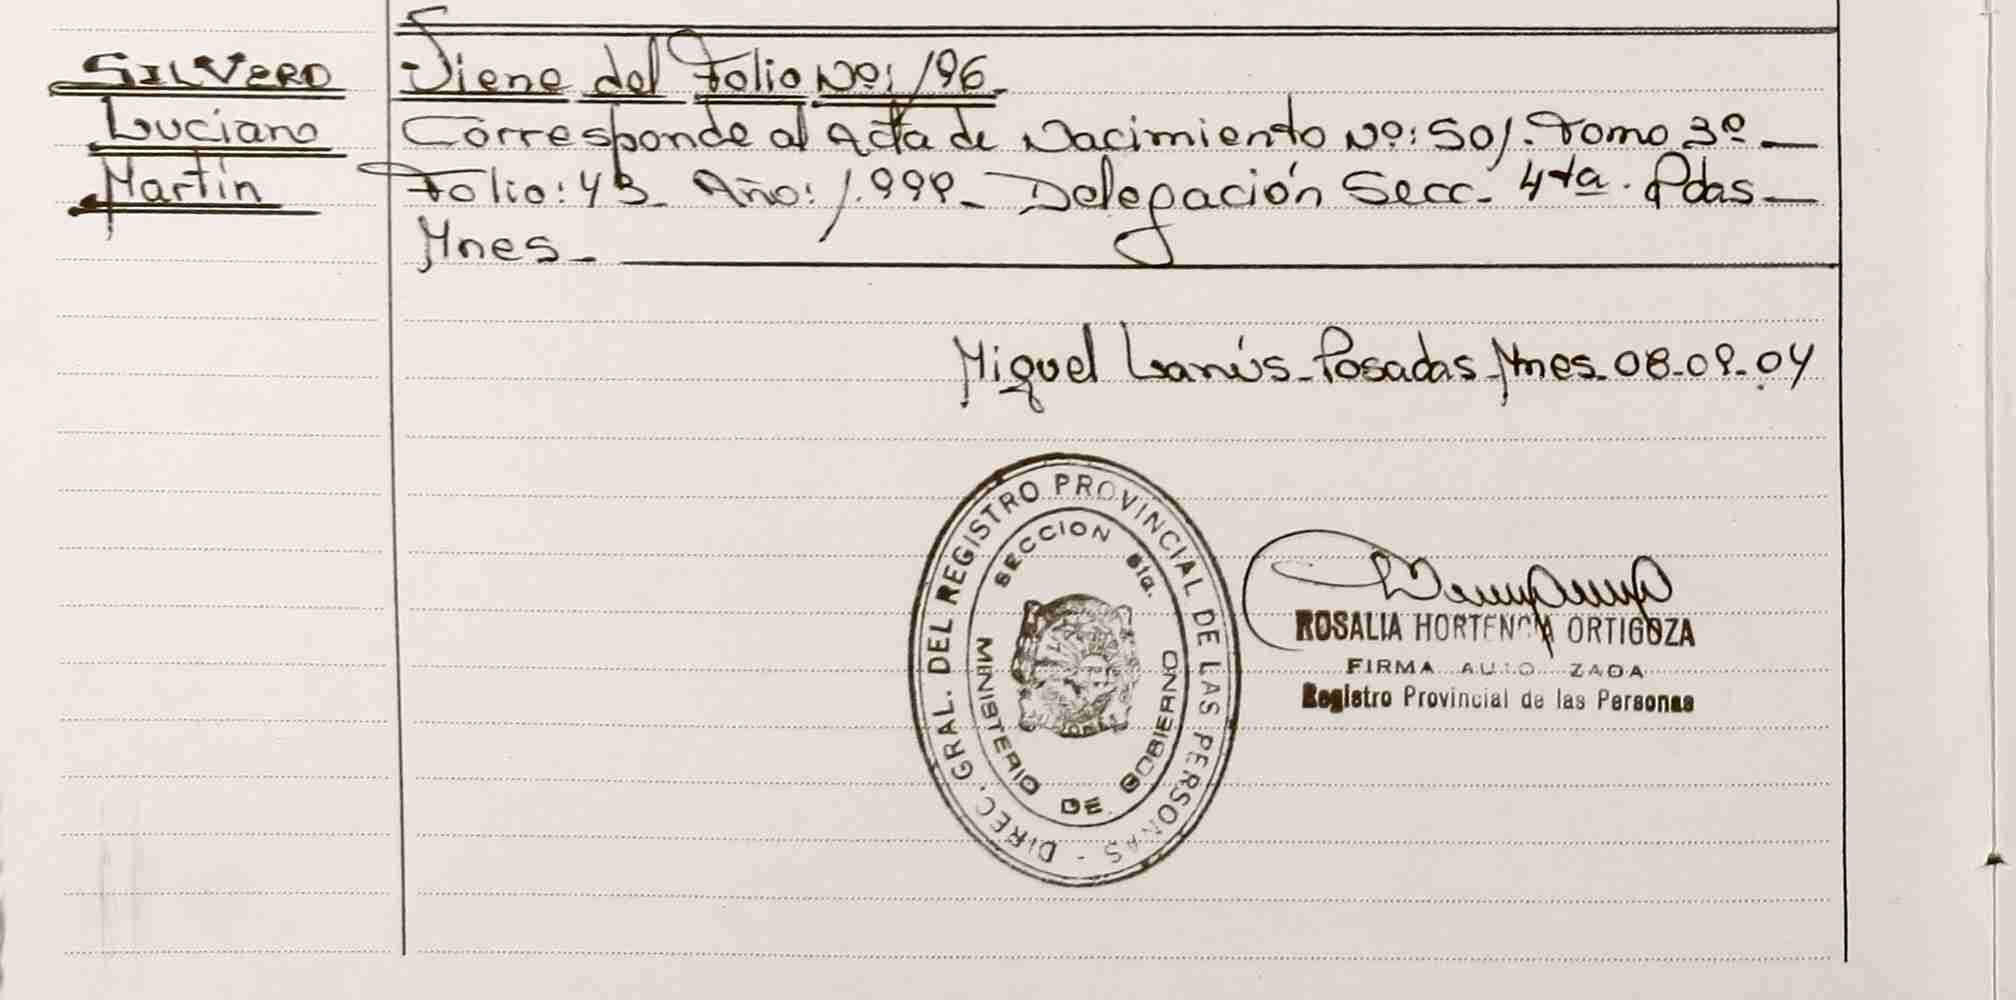 SILVERO
Luciano
Martín
Viene del Folio Nº: 196.
Corresponde al Acta de Nacimiento Nº: 501. Tomo 3º —
Folio: 43. Año: 1.999. Delegación Secc. 4ta. Pdas —
Mnes.
Miguel Lanús - Posadas Mnes. 08-09-04
DIREC. GRAL. DEL REGISTRO PROVINCIAL DE LAS PERSONAS -
SECCION 6ta.
MINISTERIO DE GOBIERNO
ROSALIA HORTENCIA ORTIGOZA
FIRMA AUTORIZADA
Registro Provincial de las Personas